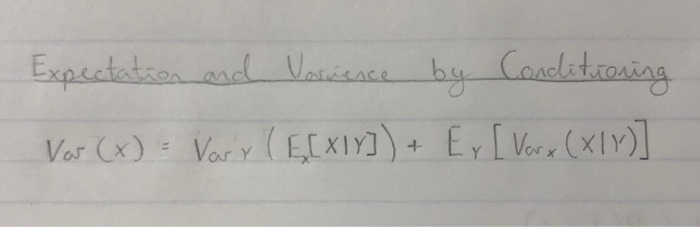 Expectation and Varience by Conditioning
Var (X) = Var Y ( E_X[X|Y]) + E_Y [ Var_X (X|Y)]